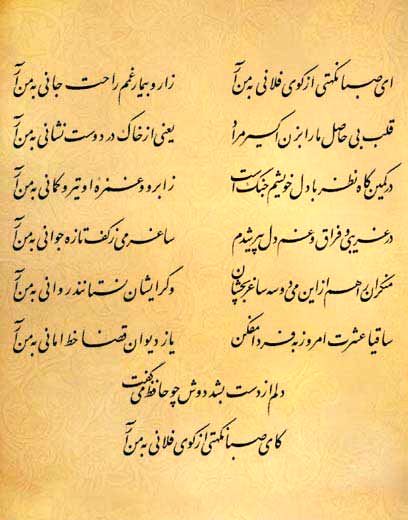 ای صبا نکهتی از کوی فلانی به من آر زار و بیمار غمم راحت جانی به من آر
قلب بی حاصل ما را بزن اکسیر مراد یعنی از خاک در دوست نشانی به من آر
در کمین گاه نظر با دل خویشم جنگ است ز ابرو و غمزه او تیر و کمانی به من آر
در غریبی و فراق و غم دل پیر شدم ساغر می ز کف تازه جوانی به من آر
منکران را هم از این می دو سه ساغر بچشان وگر ایشان نستانند روانی به من آر
ساقیا عشرت امروز به فردا مفکن یا ز دیوان قضا خط امانی به من آر
دلم از دست بشد دوش چو حافظ می گفت
کای صبا نکهتی از کوی فلانی به من آر